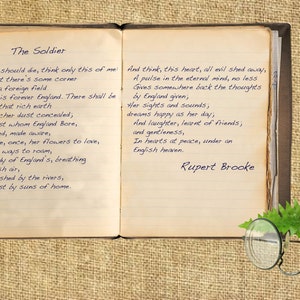 The Soldier
should die, think only this of me:
that there's some corner
a foreign field
is Forever England. There shall be
that rich earth
her dust concealed;
st whom England Bore,
d, made aware,
e, once, her flowers to love,
ways to roam,
dy of England's, breathing
sh air,
shed by the rivers,
st by suns of home.
And think, this heart, all evil shed away,
A pulse in the eternal mind, no less
Gives somewhere back the thoughts
by England given;
Her sights and sounds;
dreams happy as her day;
And laughter, learnt of friends;
and gentleness,
In hearts at peace, under an
English heaven.
Rupert Brooke